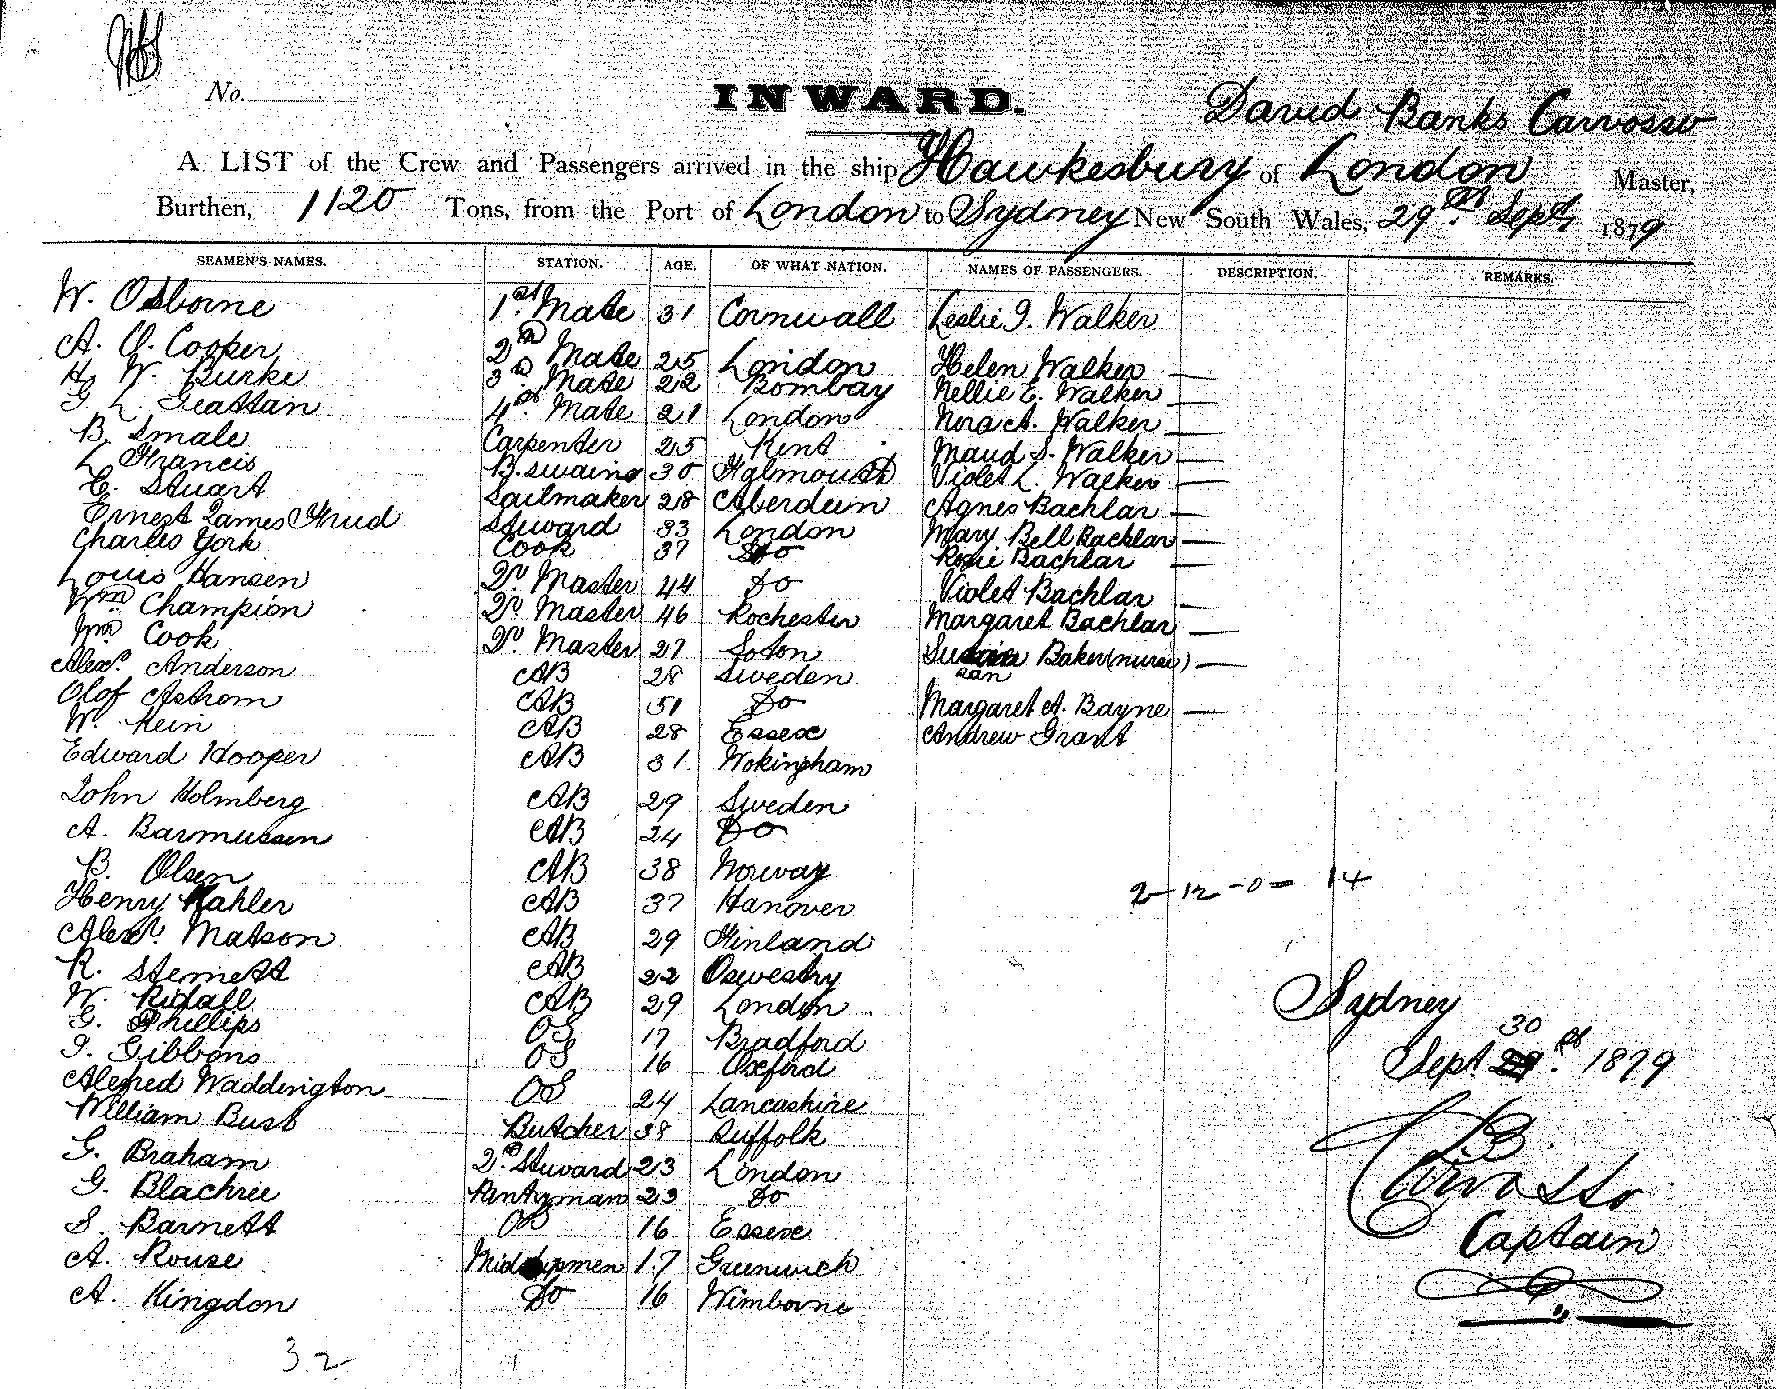 No.
INWARD.
David Banks Carvosso
A LIST of the Crew and Passengers arrived in the ship Hawkesbury of London Master,
Burthen, 1120 Tons, from the Port of London to Sydney New South Wales, 29th Sept 1879
SEAMEN'S NAMES. STATION. AGE. OF WHAT NATION. NAMES OF PASSENGERS. DESCRIPTION. REMARKS.
W. Osborne 1st Mate 31 Cornwall Leslie I. Walker
A. O. Cooper 2nd Mate 25 London Helen Walker —
H. W. Burke 3d Mate 22 Bombay Nellie E. Walker —
G L. Grattan 4th Mate 21 London Nora A. Walker —
B. Smale Carpenter 25 Kent Maud S. Walker —
L Francis B. swain 30 Falmouth Violet L. Walker —
C. Stuart Sailmaker 28 Aberdeen Agnes Bachlar —
Ernest James Steward 33 London Mary Bell Bachlar —
Charles York Cook 37 Do Rosie Bachlar —
Louis Hansen Qr Master 44 Do Violet Bachlar —
Wm Champion Qr Master 46 Rochester Margaret Bachlar —
Wm Cook Qr Master 27 Soton Susan Baker (nurse) —
Alexr. Anderson AB 28 Sweden
Olof Astrom AB 51 Do Margaret A. Bayne —
W. Hein AB 28 Essex Andrew Grant
Edward Hooper AB 31 Wokingham
John Holmberg AB 29 Sweden
A. Barmussen AB 24 Do
B. Olsen AB 38 Norway
Henry Kahler AB 37 Hanover
2-12-0= 14
Alexr. Matson AB 29 Finland
R. Sternett AB 22 Oswestry
W. Ridall AB 29 London
Sydney
G. Phillips OS 17 Bradford
J. Gibbons OS 16 Oxford
Sept 30th 1879
Alfred Waddington OS 24 Lancashire
William Bust Butcher 38 Suffolk
G. Braham 2d Steward 23 London
D B. Carvosso
G. Blachrie Pentryman 23 Do
S. Barnett OS 16 Essex
Captain
A. Rouse Midshipmen 17 Greenwich
A. Kingdon Do 16 Wimborne
32